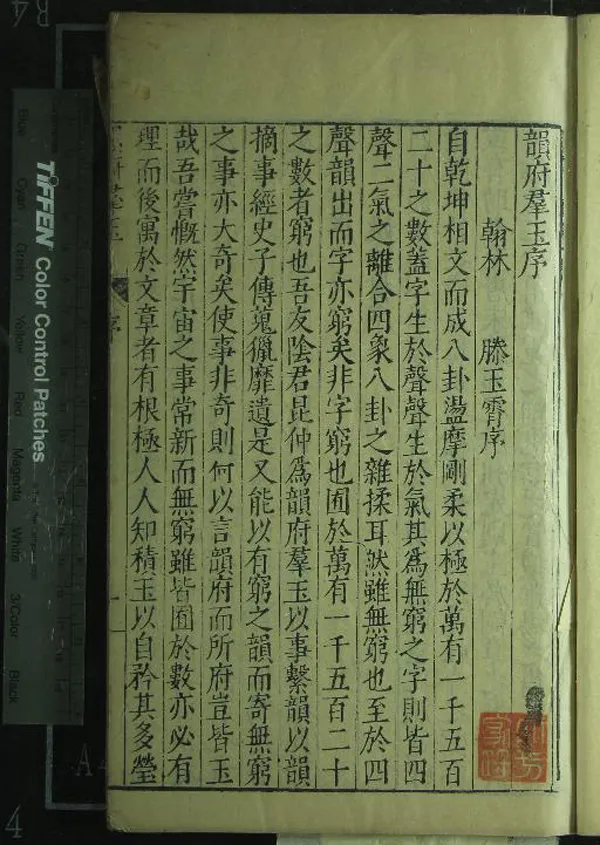 韻府羣玉序
翰林 滕玉霄序
自乾坤相文而成八卦盪摩剛柔以極於萬有一千五百
二十之數蓋字生於聲聲生於氣其爲無窮之字則皆四
聲二氣之離合四象八卦之雜揉耳然雖無窮也至於四
聲韻出而字亦窮矣非字窮也囿於萬有一千五百二十
之數者窮也吾友陰君昆仲爲韻府羣玉以事繫韻以韻
摘事經史子傳蒐獵靡遺是又能以有窮之韻而寄無窮
之事亦大奇矣使事非奇則何以言韻府而所府豈皆玉
哉吾嘗慨然宇宙之事常新而無窮雖皆囿於數亦必有
理而後寓於文章者有根極人人知積玉以自矜其多瑩
序
一
TIFFEN Color Control Patches
Blue
Cyan
Green
Yellow
Red
Magenta
White
3/Color
Black